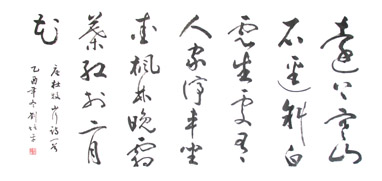 遠上寒山
石逕斜白
雲生處有
人家停車坐
愛楓林晚霜
葉紅於二月
花
唐杜牧山行詩一首
乙酉年冬劉